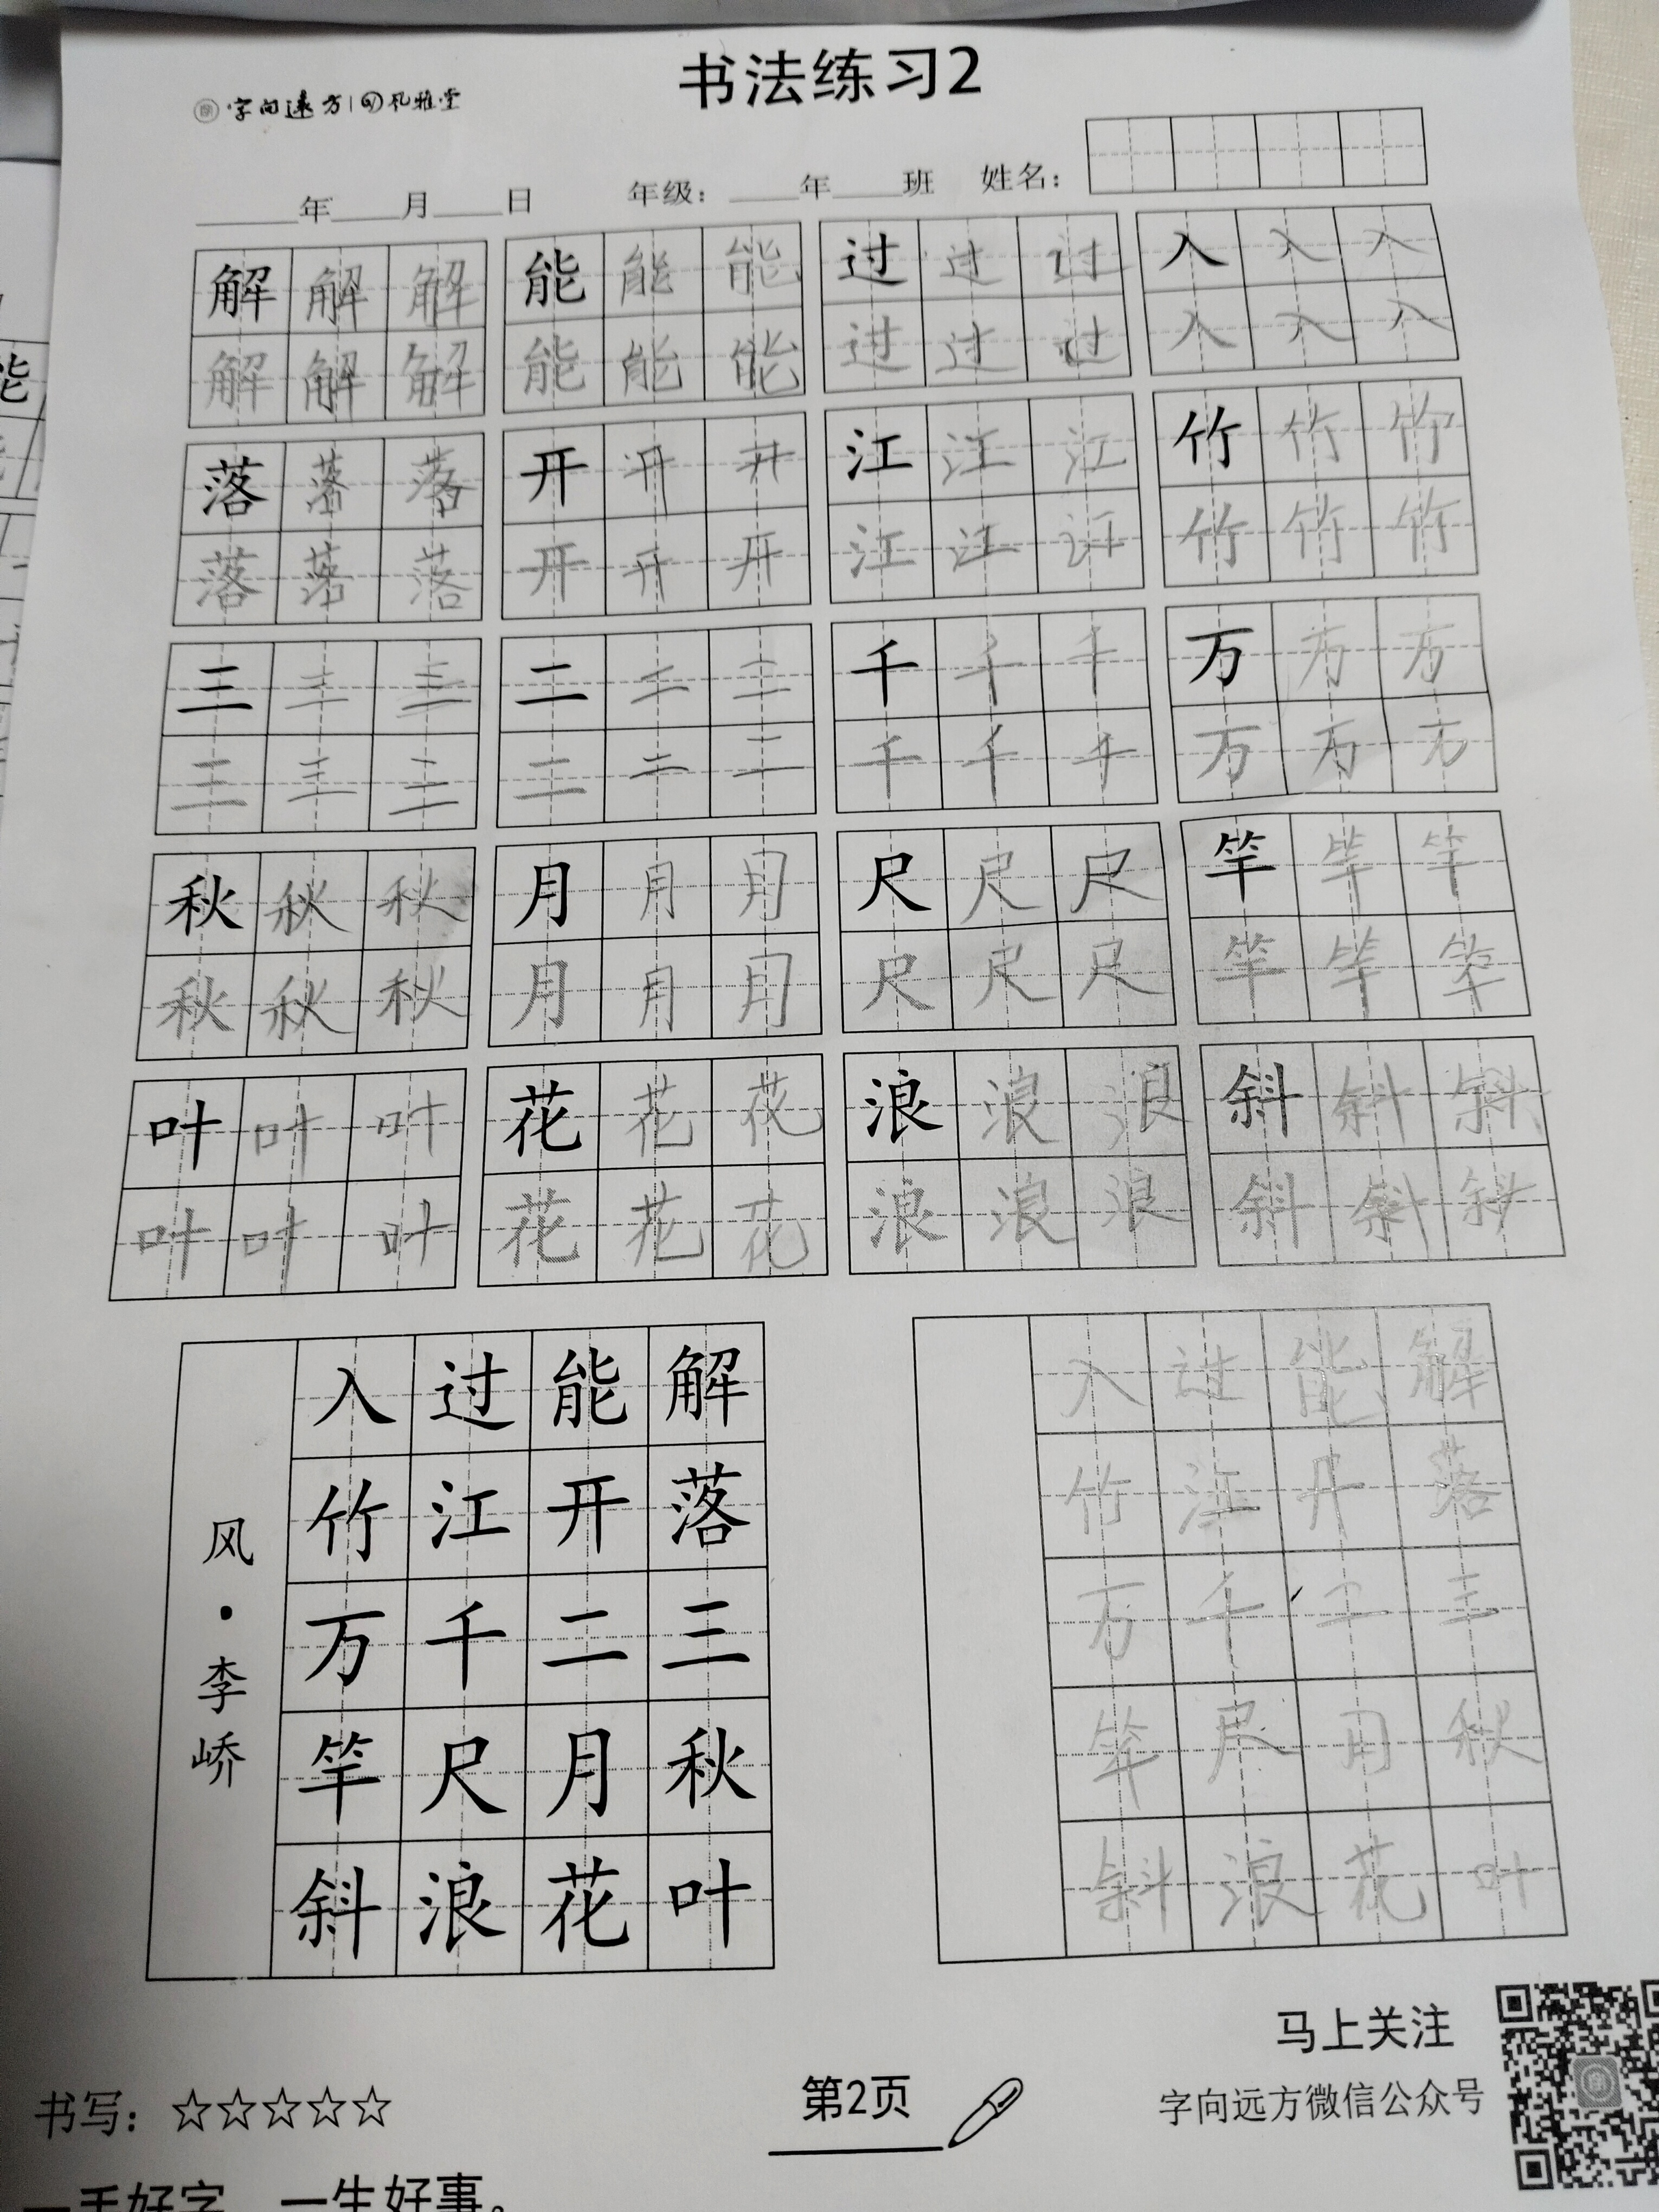 书法练习2
字向远方 孔雅堂
年 月 日 年级: 年 班 姓名:
解解解 能能能 过过过 入入入
解解解 能能能 过过过 入入入
落落落 开开开 江江江 竹竹竹
落落落 开开开 江江江 竹竹竹
三三三 二二二 千千千 万万万
三三三 二二二 千千千 万万万
秋秋秋 月月月 尺尺尺 竿竿竿
秋秋秋 月月月 尺尺尺 竿竿竿
叶叶叶 花花花 浪浪浪 斜斜斜
叶叶叶 花花花 浪浪浪 斜斜斜
解落三秋叶
能开二月花
过江千尺浪
入竹万竿斜
风·李峤
解落三秋叶
能开二月花
过江千尺浪
入竹万竿斜
马上关注
书写:☆☆☆☆☆
第2页
字向远方微信公众号
一手好字 一生好事。